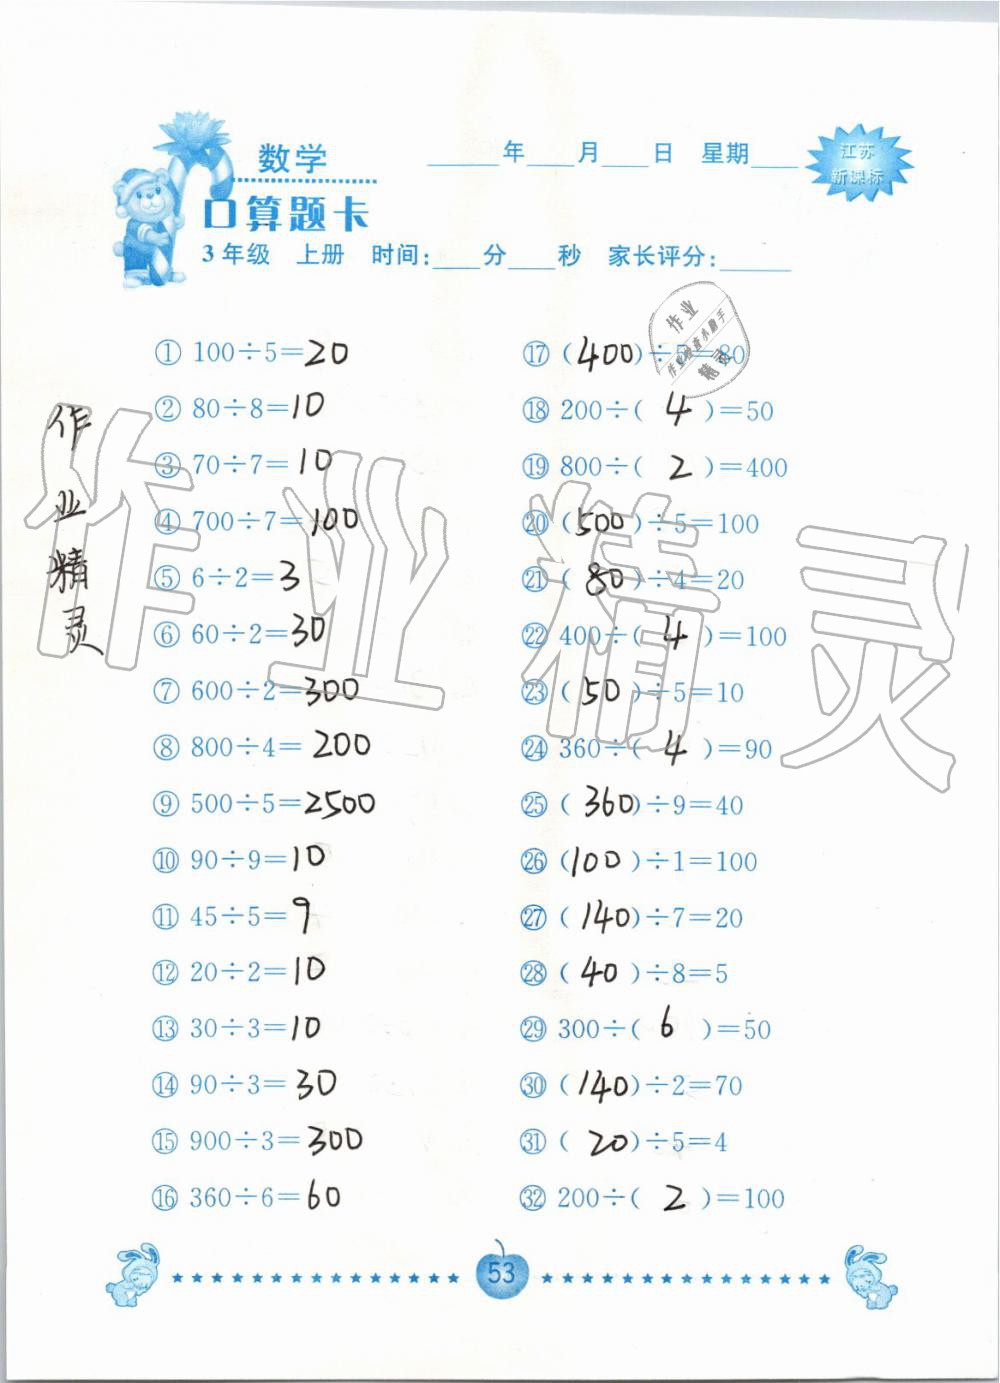 数学
____年____月____日 星期____
江苏
新课标
口算题卡
3年级 上册 时间:____分____秒 家长评分:____
① 100÷5=20
② 80÷8=10
③ 70÷7=10
④ 700÷7=100
⑤ 6÷2=3
⑥ 60÷2=30
⑦ 600÷2=300
⑧ 800÷4=200
⑨ 500÷5=2500
⑩ 90÷9=10
⑪ 45÷5=9
⑫ 20÷2=10
⑬ 30÷3=10
⑭ 90÷3=30
⑮ 900÷3=300
⑯ 360÷6=60
⑰ (400)÷5=80
⑱ 200÷(4)=50
⑲ 800÷(2)=400
⑳ (500)÷5=100
㉑ (80)÷4=20
㉒ 400÷(4)=100
㉓ (50)÷5=10
㉔ 360÷(4)=90
㉕ (360)÷9=40
㉖ (100)÷1=100
㉗ (140)÷7=20
㉘ (40)÷8=5
㉙ 300÷(6)=50
㉚ (140)÷2=70
㉛ (20)÷5=4
㉜ 200÷(2)=100
作业精灵
作业精灵
作业
作业检查小助手
精灵
53